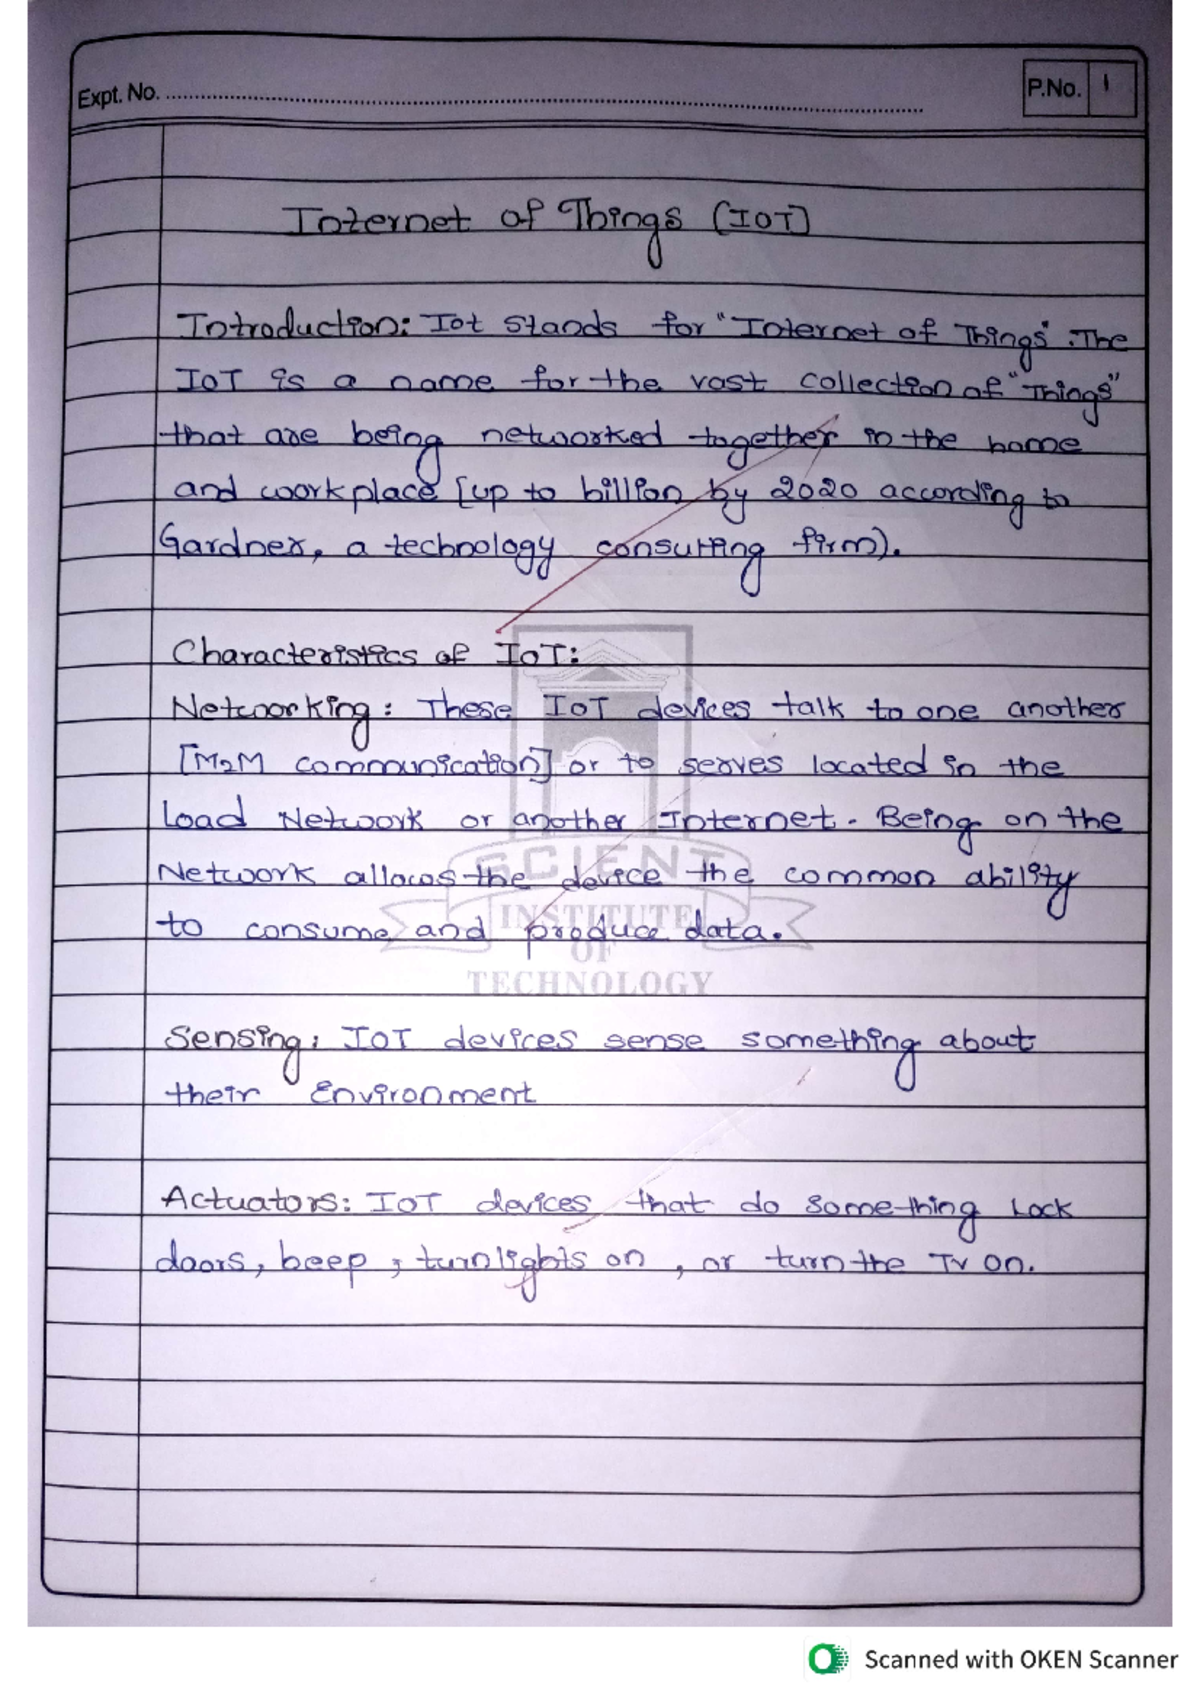 Expt. No.
P.No. 1
Internet of Things (IOT)
Introduction: Iot stands for "Internet of Things". The
IoT is a name for the vast collection of "Things"
that are being networked together in the home
and workplace [up to billion by 2020 according to
Gardner, a technology consulting firm).
Characteristics of IoT:
Networking: These IoT devices talk to one another
[M2M communication] or to serves located in the
Load Network or another Internet. Being on the
Network allows the device the common ability
to consume and produce data.
SCIENT
INSTITUTE
OF
TECHNOLOGY
Sensing: IoT devices sense something about
their Environment
Actuators: IoT devices that do something Lock
doors, beep, turn lights on, or turn the Tv on.
Scanned with OKEN Scanner